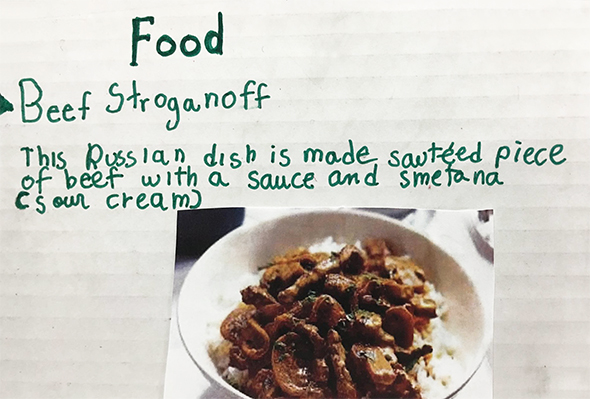 Food
Beef Stroganoff
This Russian dish is made sautéed piece
of beef with a sauce and smetana
(sour cream)